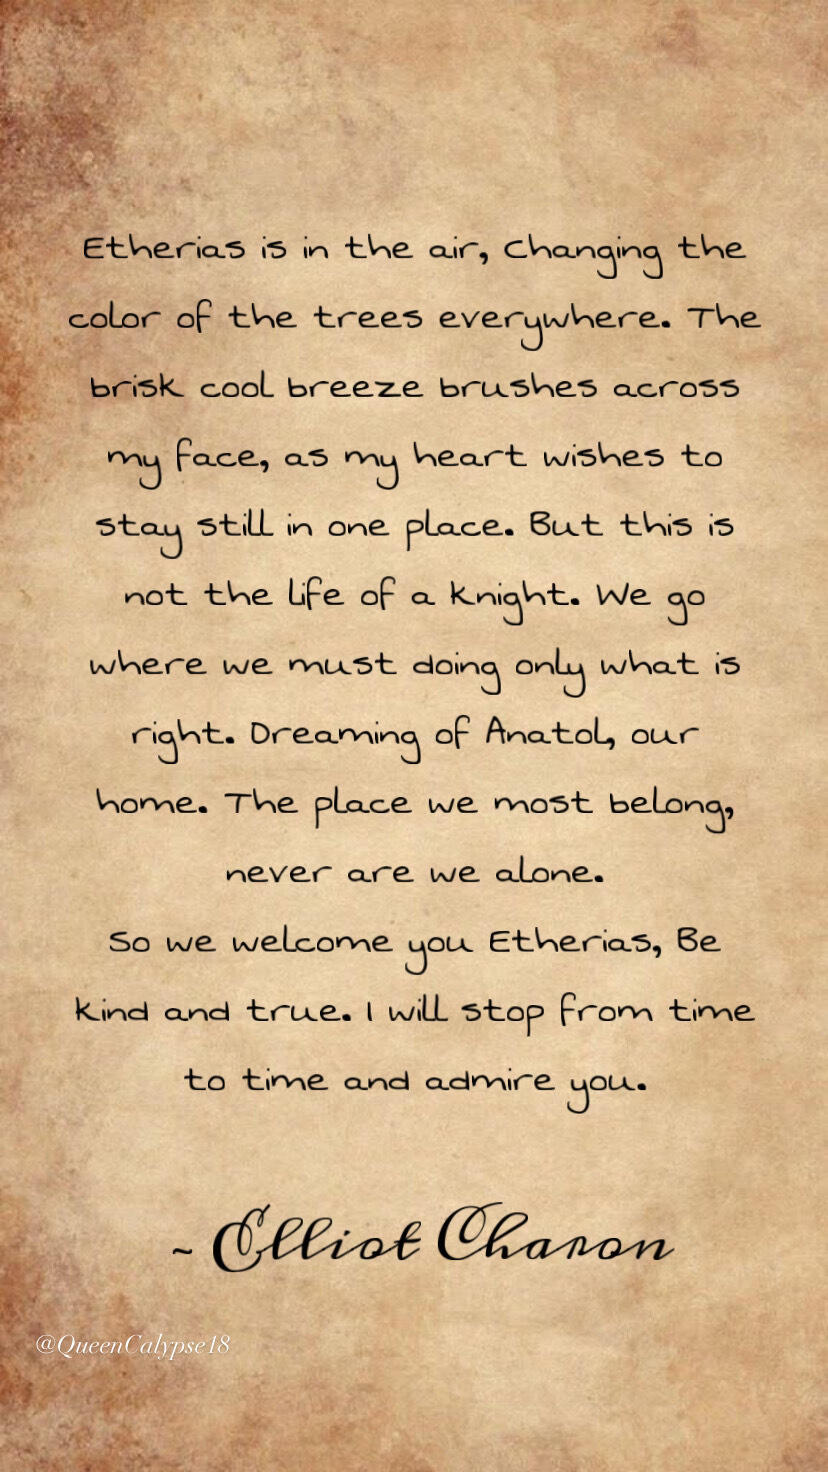 Etherias is in the air, Changing the
color of the trees everywhere. The
brisk cool breeze brushes across
my face, as my heart wishes to
stay still in one place. But this is
not the life of a knight. We go
where we must doing only what is
right. Dreaming of Anatol, our
home. The place we most belong,
never are we alone.
So we welcome you Etherias, Be
kind and true. I will stop from time
to time and admire you.
~ Elliot Charon
@QueenCalypse18